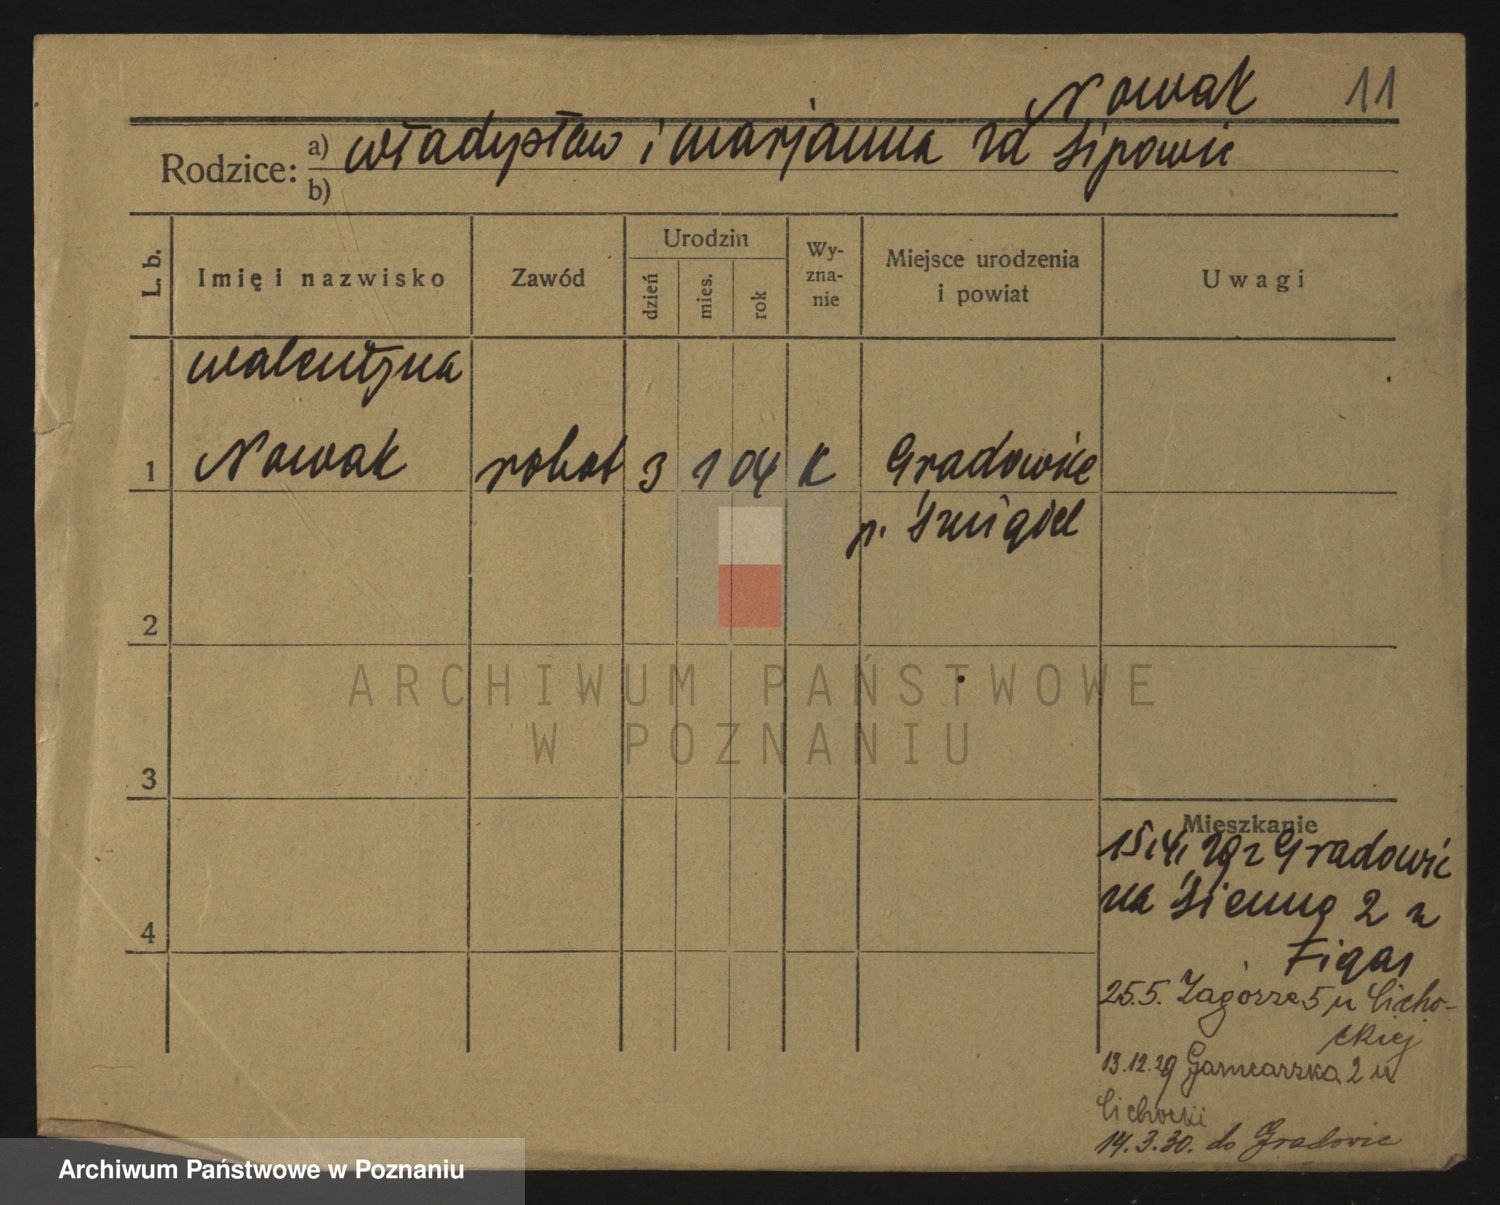 Nowak 11
Rodzice: a) Władysław i Marjanna zd Lipowic
b)
L. b.
Imię i nazwisko
Zawód
Urodzin
dzień
mies.
rok
Wy-
zna-
nie
Miejsce urodzenia
i powiat
Uwagi
Walentyna
1 Nowak robot 3 1 04 K Gradowice
p. Śmigiel
2
3
4
ARCHIWUM PAŃSTWOWE
W POZNANIU
Mieszkanie
15/4, 29 z Gradowic
na Sienną 2 u
Figas
25.5. Zagórze 5 u Cicho-
ckiej
13.12.29 Garncarska 2 u
Cichocki
14.3.30. do Gradowic
Archiwum Państwowe w Poznaniu